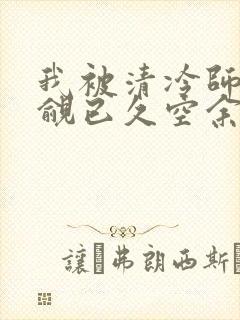 我被清冷師
覦已久空余
讓 弗朗西斯